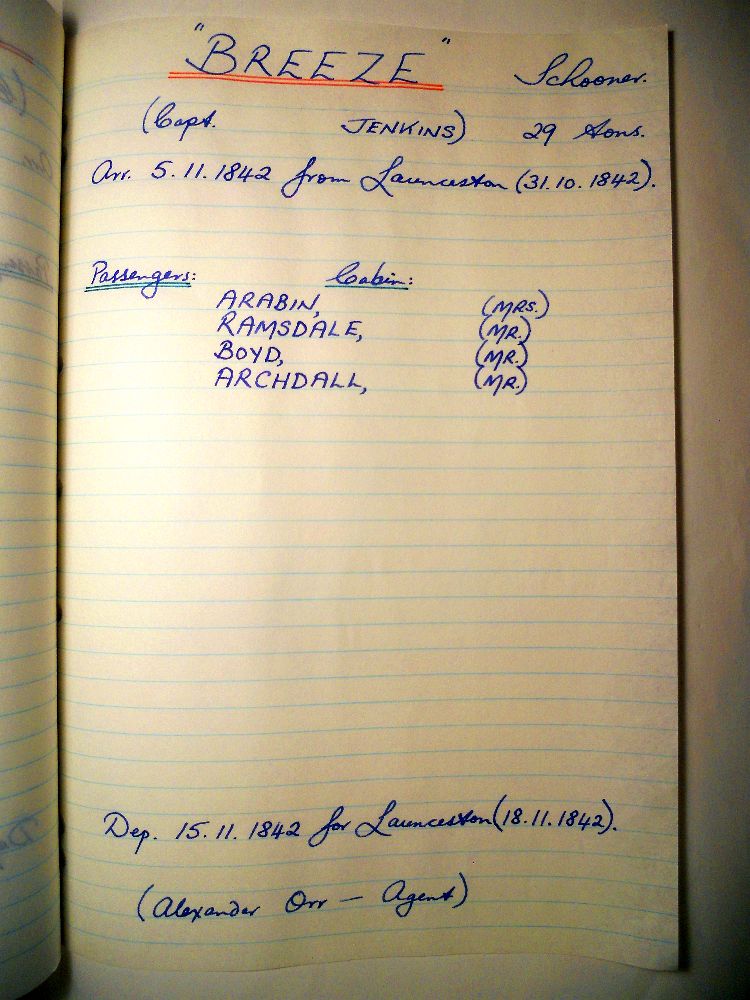 "BREEZE" Schooner.
(Capt. JENKINS) 29 tons.
Arr. 5.11.1842 from Launceston (31.10.1842).
Passengers: Cabin:
ARABIN, (MRS.)
RAMSDALE, (MR.)
BOYD, (MR.)
ARCHDALL, (MR.)
Dep. 15.11.1842 for Launceston (18.11.1842).
(Alexander Orr — Agent)